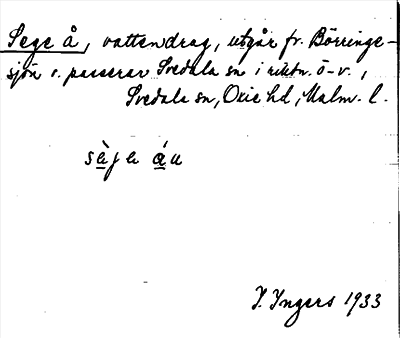 Sege å, vattendrag, utgår fr. Börringe-
sjön o. passerar Svedala sn i riktn. ö-v.,
Svedala sn, Oxie hd, Malm. l.
sè̱je á̱u
I. Ingers 1933